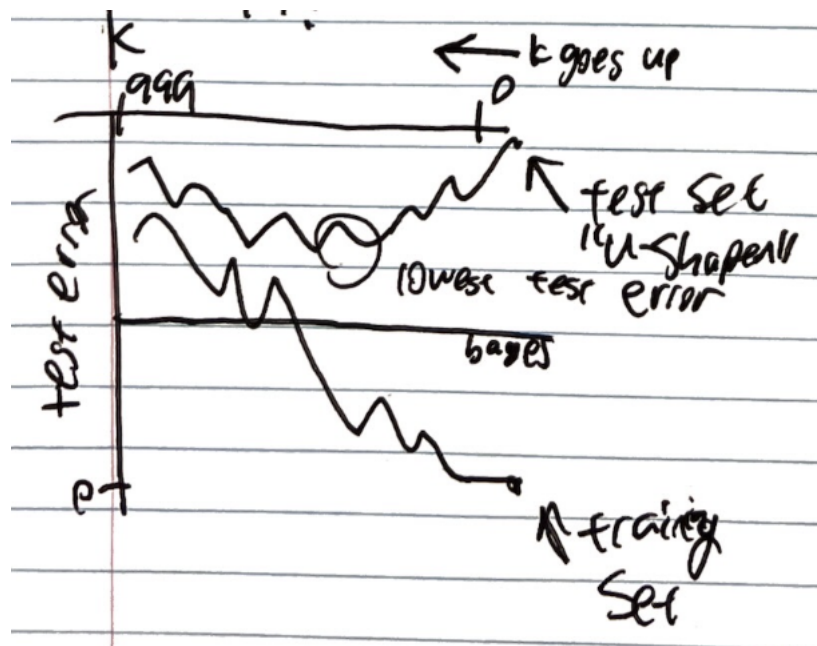 K
← k goes up
999
0
test set
"U-shaped"
lowest test error
test error
bayes
0
training
set